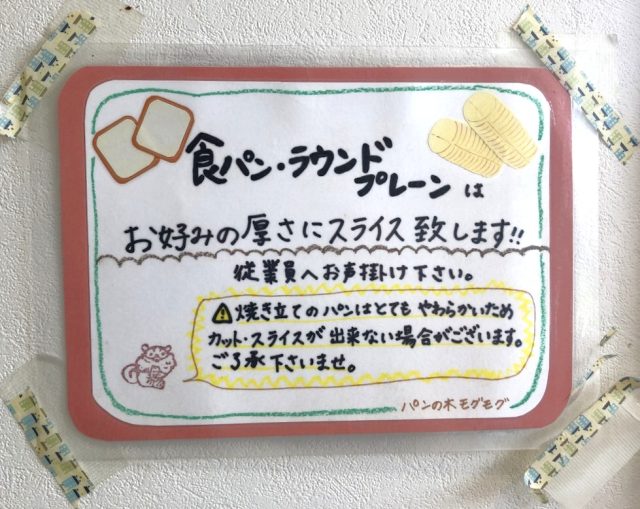 食パン・ラウンド
プレーンは
お好みの厚さにスライス致します!!
従業員へお声掛け下さい。
⚠焼き立てのパンはとてもやわらかいため
カット・スライスが出来ない場合がございます。
ご了承下さいませ。
パンの木モグモグ